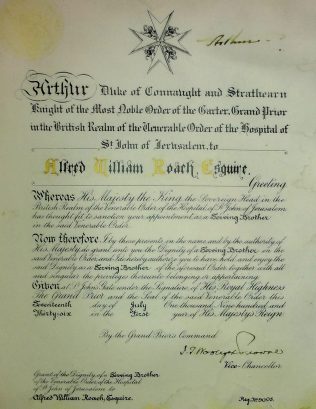 Arthur
Arthur Duke of Connaught and Strathearn
Knight of the Most Noble Order of the Garter, Grand Prior
in the British Realm of the Venerable Order of the Hospital of
St John of Jerusalem, to
Alfred William Roach, Esquire.
Greeting
Whereas His Majesty the King the Sovereign Head in the
British Realm of the Venerable Order of the Hospital of St John of Jerusalem
has thought fit to sanction your appointment as a Serving Brother
in the said Venerable Order.
Now therefore I by these presents in the name and by the authority of
His Majesty, do grant unto you the Dignity of a Serving Brother of the
said Venerable Order and I do hereby authorize you to have, hold and enjoy the
said Dignity as a Serving Brother of the aforesaid Order, together with all
and singular the privileges thereunto belonging or appertaining
Given at St John's Gate under the Signature of His Royal Highness
The Grand Prior and the Seal of the said Venerable Order this
Seventeenth day of July One thousand Nine hundred and
Thirty-six in the First year of His Majesty's Reign.
By the Grand Prior's Command
Vice-Chancellor
Grant of the Dignity of a Serving Brother
of the Venerable Order of the Hospital
of St John of Jerusalem to
Alfred William Roach, Esquire.